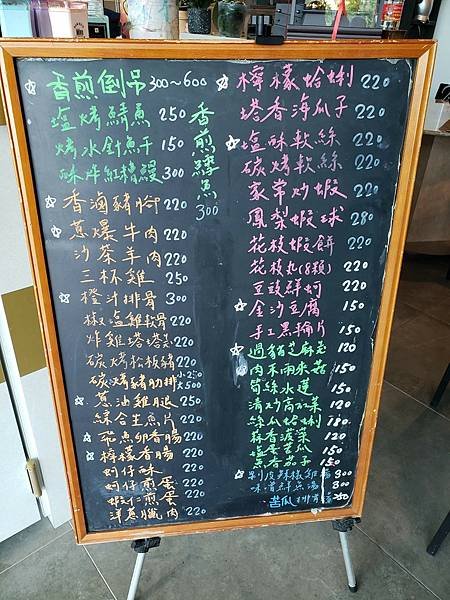 ☆香煎倒吊 300~600
塩烤鯖魚 250
烤水針魚干 150
酥炸紅糟鰻 300
香煎鱈魚 300
☆香滷豬腳 220
☆蔥爆牛肉 220
沙茶羊肉 220
三杯雞 250
☆橙汁排骨 300
椒塩雞軟骨 220
炸雞塔塔 220
碳烤松板豬 220
碳烤豬肋排 小250 大500
☆蔥油雞腿 250
綜合生魚片 220
☆飛魚卵香腸 220
☆檸檬香腸 220
蚵仔酥 220
蚵仔煎蛋 220
蝦仁煎蛋 220
洋蔥臘肉 220
☆檸檬蛤蜊 220
塔香海瓜子 220
☆塩酥軟絲 220
碳烤軟絲 220
家常炒蝦 220
鳳梨蝦球 280
花枝蝦餅 220
花枝丸(8顆) 220
豆豉鮮蚵 220
☆金沙豆腐 150
手工黑輪片 150
☆過貓芝麻 120
肉末雨來菇 150
筍絲水蓮 150
清炒高山菜 120
絲瓜蛤蜊 180
蒜香菠菜 120
塩蛋苦瓜 150
魚香茄子 150
☆剝皮辣椒雞湯 300
味噌鮮魚湯 300
苦瓜排骨湯 250